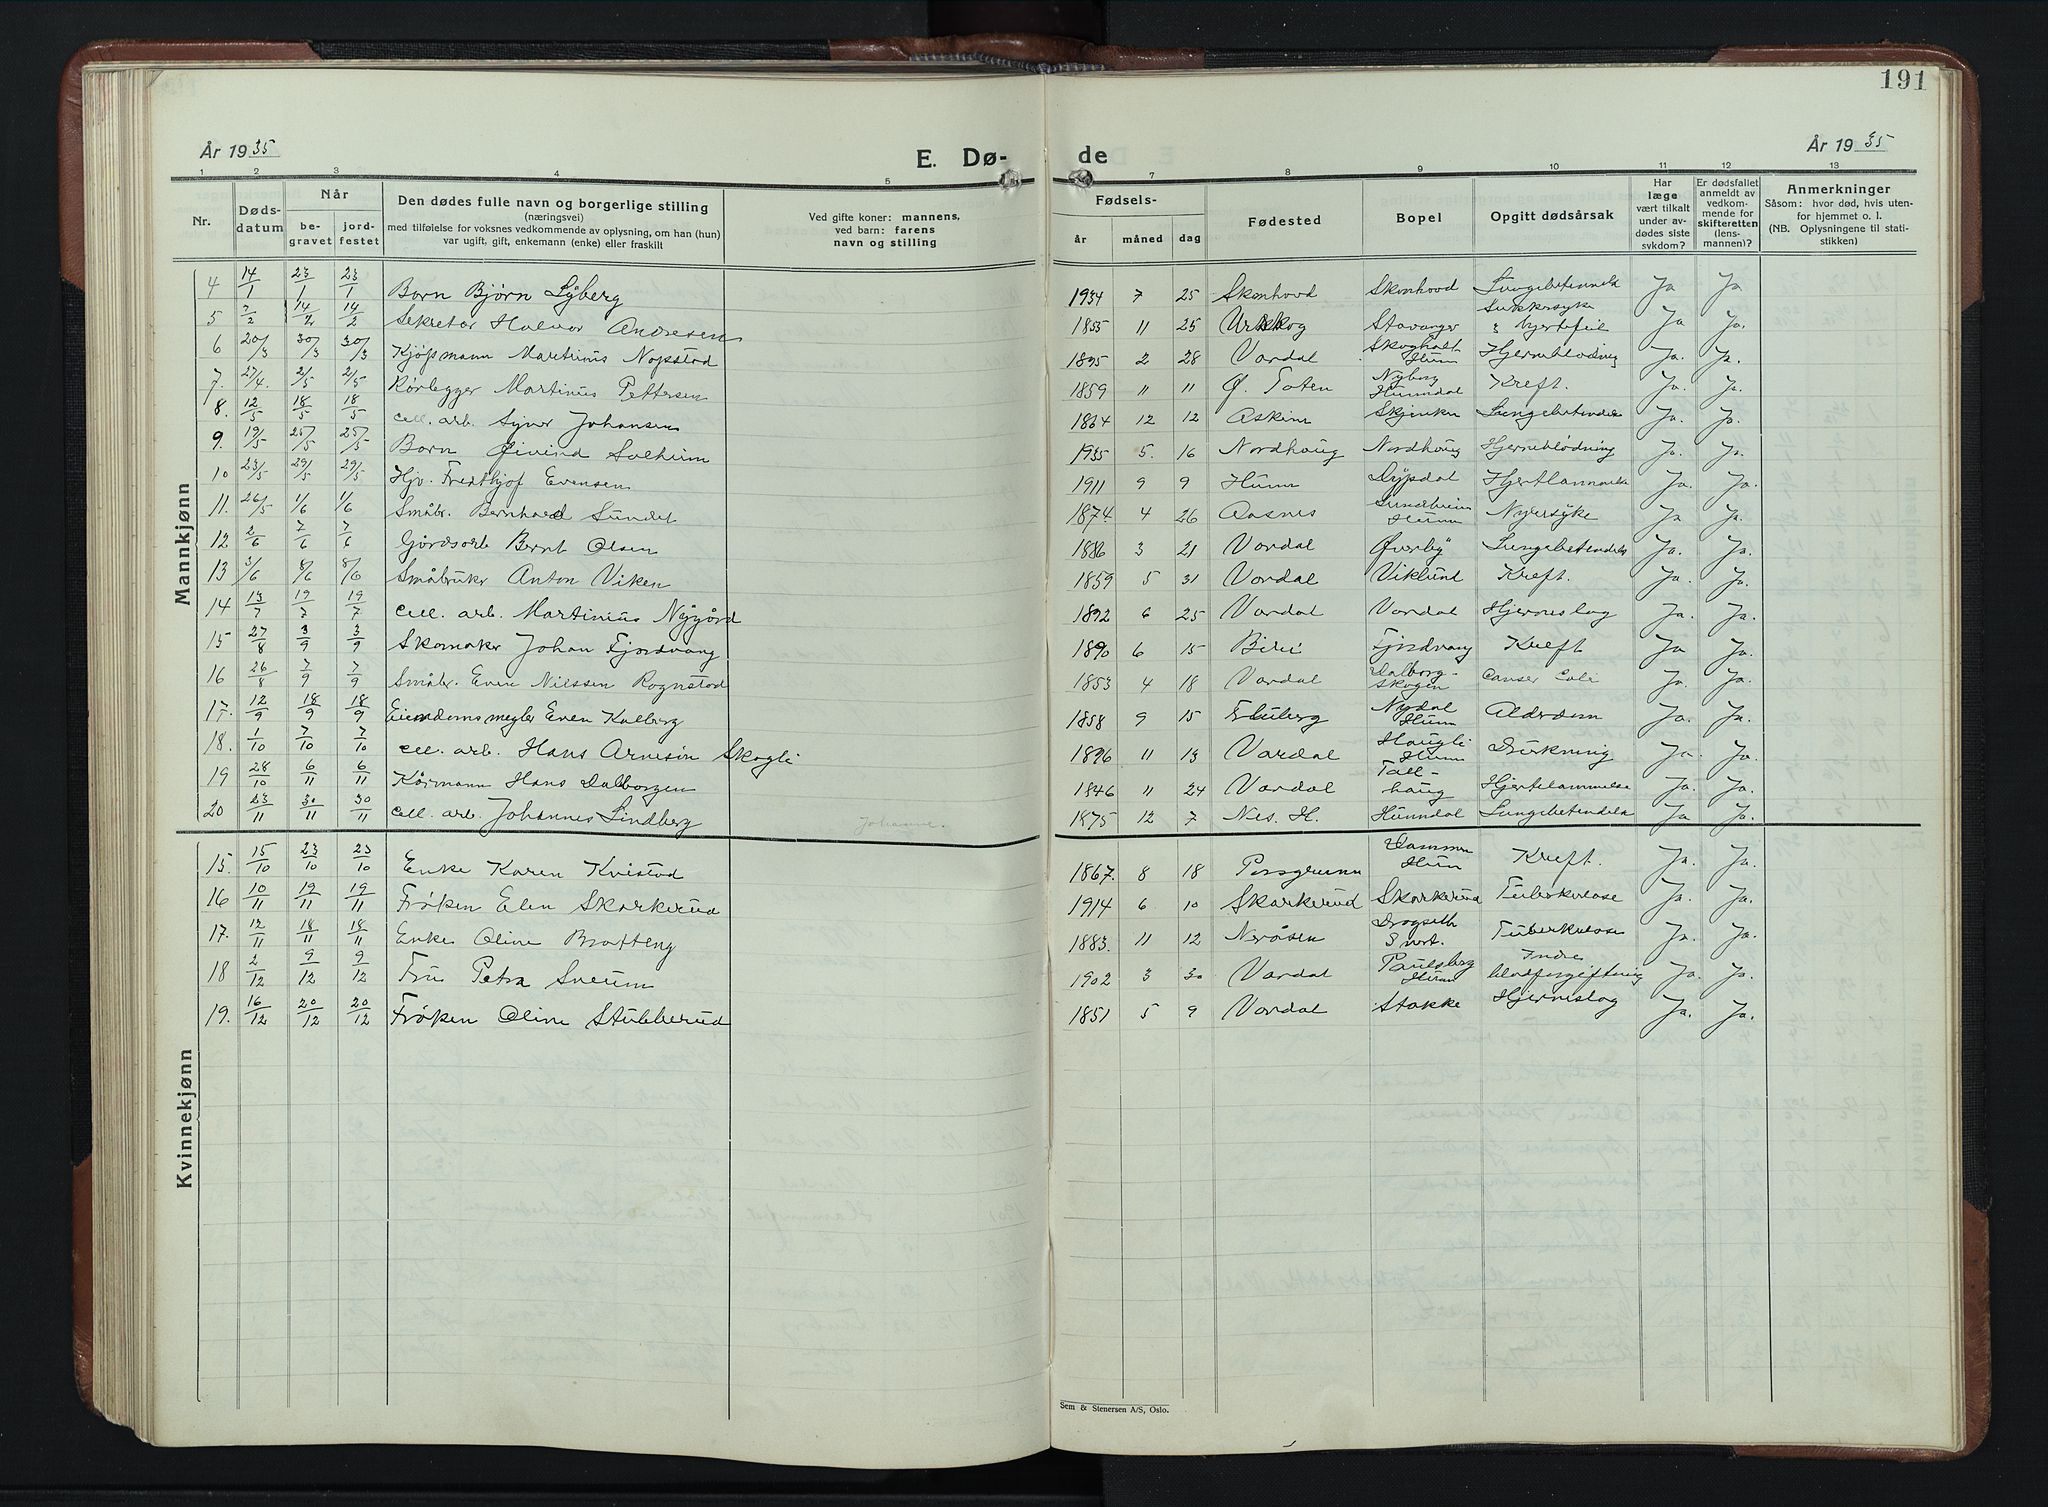 191
År 1935
E. Dø-
de
År 1935
1 2 3 4 5 7 8 9 10 11 12 13
Nr.
Døds-
datum
Når
be-
gravet
jord-
festet
Den dødes fulle navn og borgerlige stilling
(næringsvei)
med tilføielse for voksnes vedkommende av oplysning, om han (hun)
var ugift, gift, enkemann (enke) eller fraskilt
Ved gifte koner: mannens,
ved barn: farens
navn og stilling
Fødsels-
år måned dag
Fødested
Bopel
Opgitt dødsårsak
Har
læge
vært tilkalt
under av-
dødes siste
sykdom?
Er dødsfallet
anmeldt av
vedkom-
mende for
skifteretten
(lens-
mannen)?
Anmerkninger
Såsom: hvor død, hvis uten-
for hjemmet o. l.
(NB. Oplysningene til stati-
stikken)
Mannkjønn
4 14/1 23/1 23/1 Barn Bjørn Lyberg 1934 7 25 Skonhovd Skonhovd Lungebetendelse Ja Ja
5 7/2 14/2 14/2 Sekretær Halvor Andresen 1855 11 25 Urskog Stavanger Sukkersyke & hjertefeil Ja Ja.
6 20/3 30/3 30/3 Kjøpmann Martinius Nopstad 1895 2 28 Vardal Skogholt Hunn Hjerneblødning Ja. Ja.
7. 27/4. 2/5 2/5 Rørlegger Martinus Pettersen 1859 11 11 Ø. Toten Nyborg Hunndal Kreft. Ja. Ja.
8. 12/5 18/5 18/5 cell. arb. Syver Johansen 1864 12 12 Askim Lungebetendelse Ja. Ja.
9. 19/5 25/5 25/5 Barn Øivind Solheim 1935 5. 16 Nordhaug Nordhaug Hjerneblødning Ja. Ja.
10 23/5 29/5 29/5 Hjv. Fredthjof Evensen 1911 9 9 Hunn Dypdal Hjertlammelse Ja. Ja.
11. 26/5 1/6 1/6 Småbr. Bernhard Sundet 1874. 4 26 Aasnes Sundheim Hunn Nyresyke Ja Ja.
12 2/6 7/6 7/6 Gårdsarb Bernt Olsen 1886 3 21 Vardal Øverby Lungebetendelse Ja. Ja.
13 3/6 8/6 8/6 Småbruker Anton Viken 1859 5 31 Vardal Viklund Kreft. Ja. Ja.
14 13/7 19/7 19/7 cell. arb. Martinius Nygård 1892 6 25 Vardal Vardal Hjerneslag Ja. Ja.
15 27/8 3/9 3/9 Skomaker Johan Fjordvang 1890 6 15 Biri Fjordvang Kreft Ja Ja.
16 26/8 7/9 7/9 Småbr. Even Nilssen Rognstad 1853 4 18 Vardal Dalborg-skogen Canser Coli Ja. Ja.
17. 12/9 18/9 18/9 Eiendomsmegler Even Kalberg 1858 9 15 Fluberg Nydal Hunn Alderdom Ja. Ja.
18. 1/10 7/10 7/10 cell. arb. Hans Arnesøn Skogli 1896 11 13 Vardal Haugli Hunn Drukning Ja. Ja.
19 28/10 6/11 6/11 Kårmann Hans Dalborgen 1846 11 24 Vardal Tall-haug Hjertelammelse Ja. Ja.
20 23/11 30/11 30/11 cell. arb. Johannes Lindberg Johanne. 1875 12 7 Nes. H. Hunndal Lungebetendelse Ja Ja.
Kvinnekjønn
15. 15/10 23/10 23/10 Enke Karen Kvistad 1867. 8 18 Porsgrunn Hunn Kreft. Ja. Ja.
16 10/11 19/11 19/11 Frøken Elen Skarkerud 1914 6 10 Skarkerud Skarkerud Tuberkulose Ja. Ja.
17. 12/11 18/11 18/11 Enke Oline Bratteng 1883. 11 12 Neråsen Dragseth Snert. Tuberkulose Ja. Ja.
18 2/12 9/12 9/12 Fru Petra Sveum 1902 3 30 Vardal Paulsberg Hunn Indre blodforgiftning Ja. Ja.
19. 16/12 20/12 20/12 Frøken Oline Stubberud 1851 5 9 Vardal Stokke Hjerneslag Ja. Ja.
Sem & Stenersen A/S, Oslo.